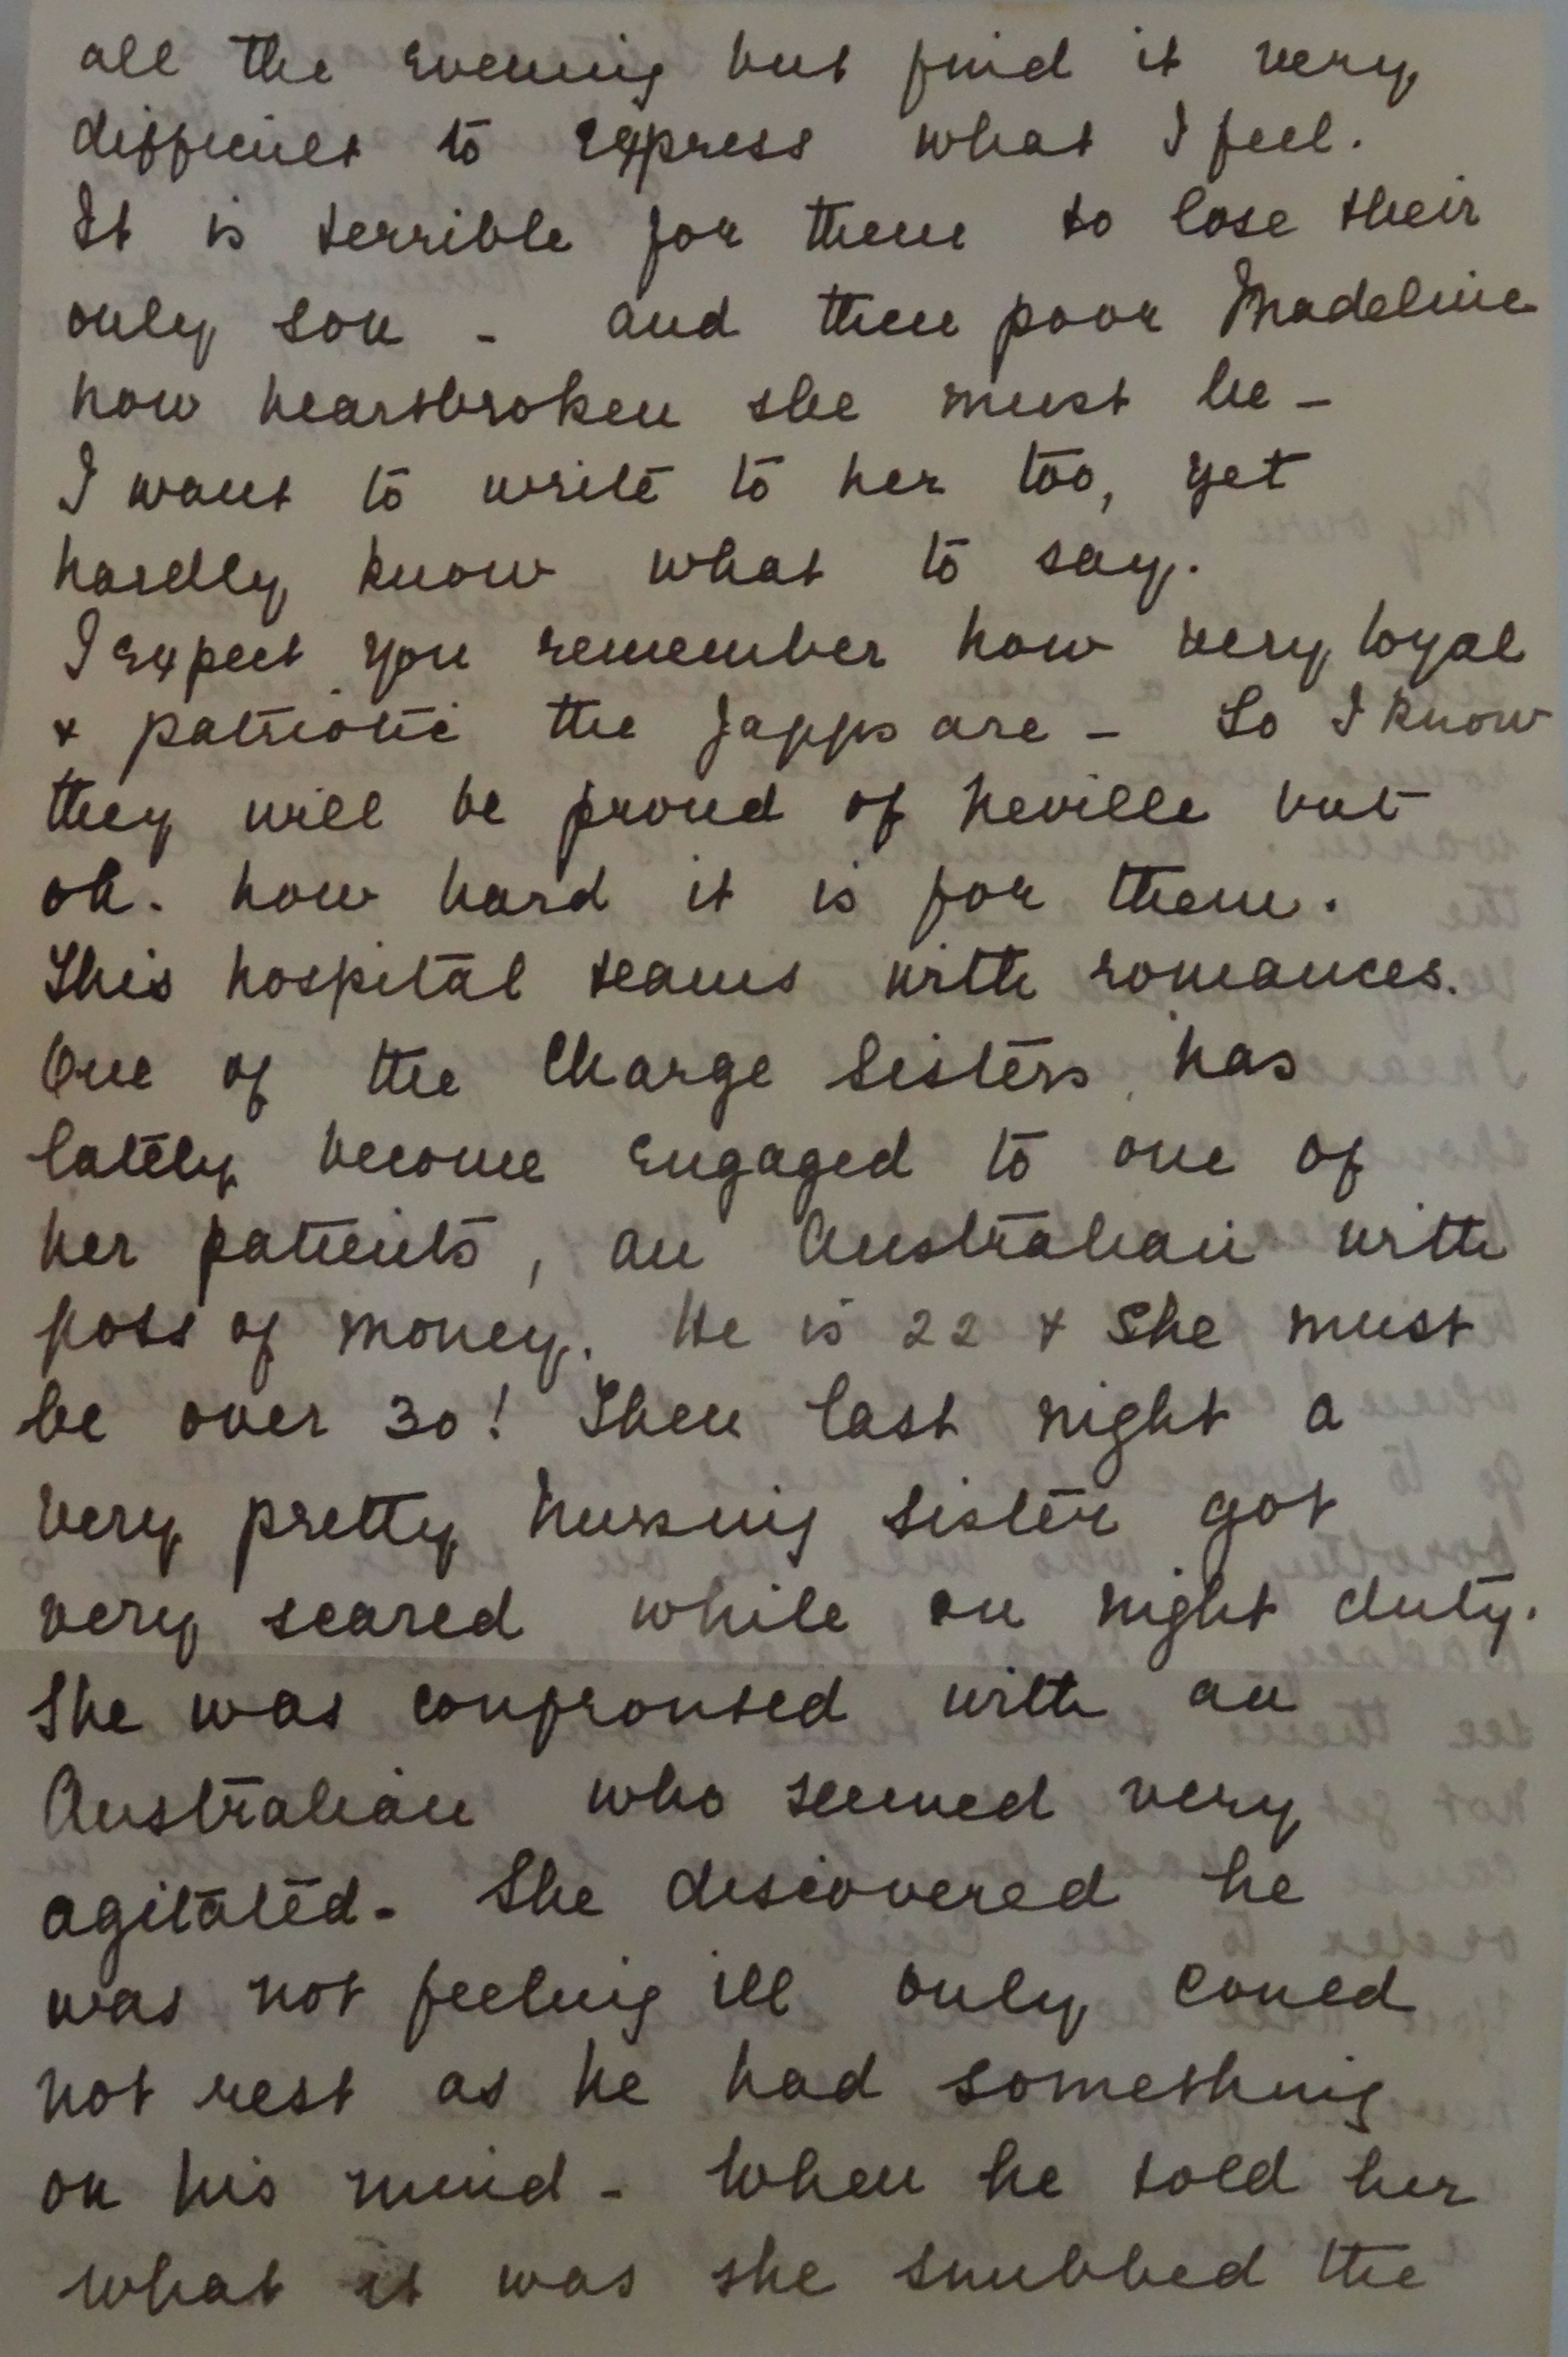 all the evening but find it very
difficult to express what I feel.
It is terrible for them to lose their
only son - and then poor Madeline
how heartbroken she must be -
I want to write to her too, yet
hardly know what to say.
I expect you remember how very loyal
& patriotic the Japps are - So I know
they will be proud of Neville but
oh. how hard it is for them.
This hospital teams with romances.
One of the Charge Sisters has
lately become engaged to one of
her patients, an Australian with
pots of money. He is 22 & She must
be over 30! Then last night a
very pretty Nursing Sister got
very scared while on night duty.
She was confronted with an
Australian who seemed very
agitated - She discovered he
was not feeling ill only could
not rest as he had something
on his mind - When he told her
what it was she snubbed the